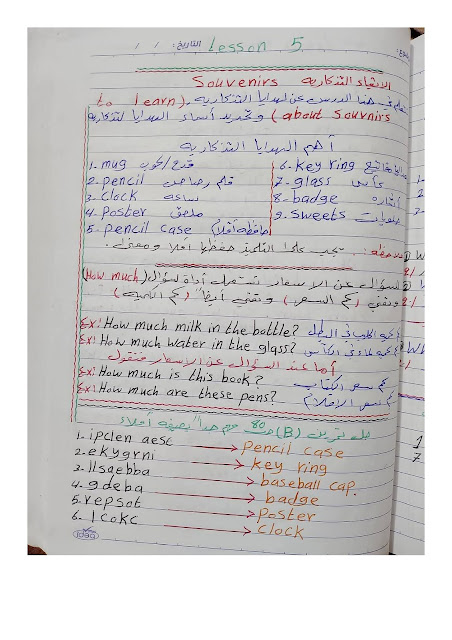 Lesson 5
التاريخ: / /
Souvenirs الاشياء التذكارية
نتعلم في هذا الدرس عن الهدايا التذكارية. (to learn
about Souvnirs) وتحديد أسماء الهدايا التذكارية
أهم الهدايا التذكارية
1- mug قدح/كوب
2- pencil قلم رصاص
3- clock ساعة
4- poster ملصق
5- pencil case حافظة أقلام
6- key ring
7- glass كأس
8- badge شارة
9- sweets حلويات
ملاحظة: يجب على التلميذ حفظها أملاء ومعنى.
للسؤال عن الاسعار نستعمل أداة لسؤال (How much)
وتعني (كم السعر) وتعني أيضاً (كم الكمية)
Ex: How much milk in the bottle?
Ex: How much water in the glass?
أما عند السؤال عن الاسعار فنقول
Ex: How much is this book? كم سعر الكتاب
Ex: How much are these pens? كم سعر الاقلام
حل تمرين (B) ص 80
1- ipclen aesc → pencil case
2- ekygrni → key ring
3- llsaebba → baseball cap.
4- gdeba → badge
5- repsot → poster
6- lcokc → clock